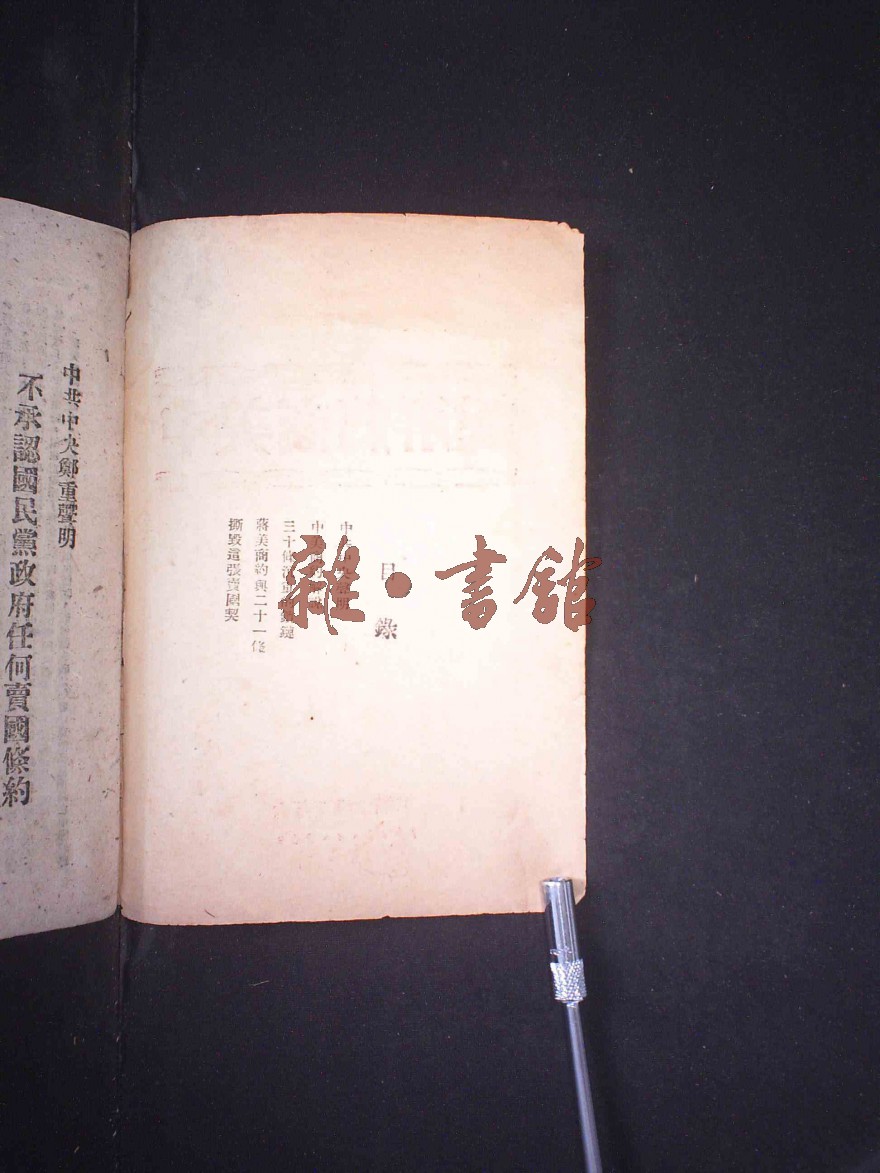 目錄
中央聲明
中
三十條鎖鏈
蔣美商約與二十一條
撕毀這張賣國契
中共中央鄭重聲明
不承認國民黨政府任何賣國條約
雜·書館